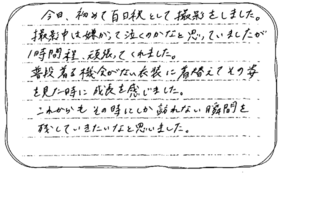 今日、初めて百日祝として撮影をしました。
撮影中は嫌がって泣くのかなと思っていましたが
1時間程、頑張ってくれました。
普段着る機会がない衣装に着替えてその姿
を見た時に成長を感じました。
これからもその時にしか訪れない瞬間を
残していきたいなと思いました。